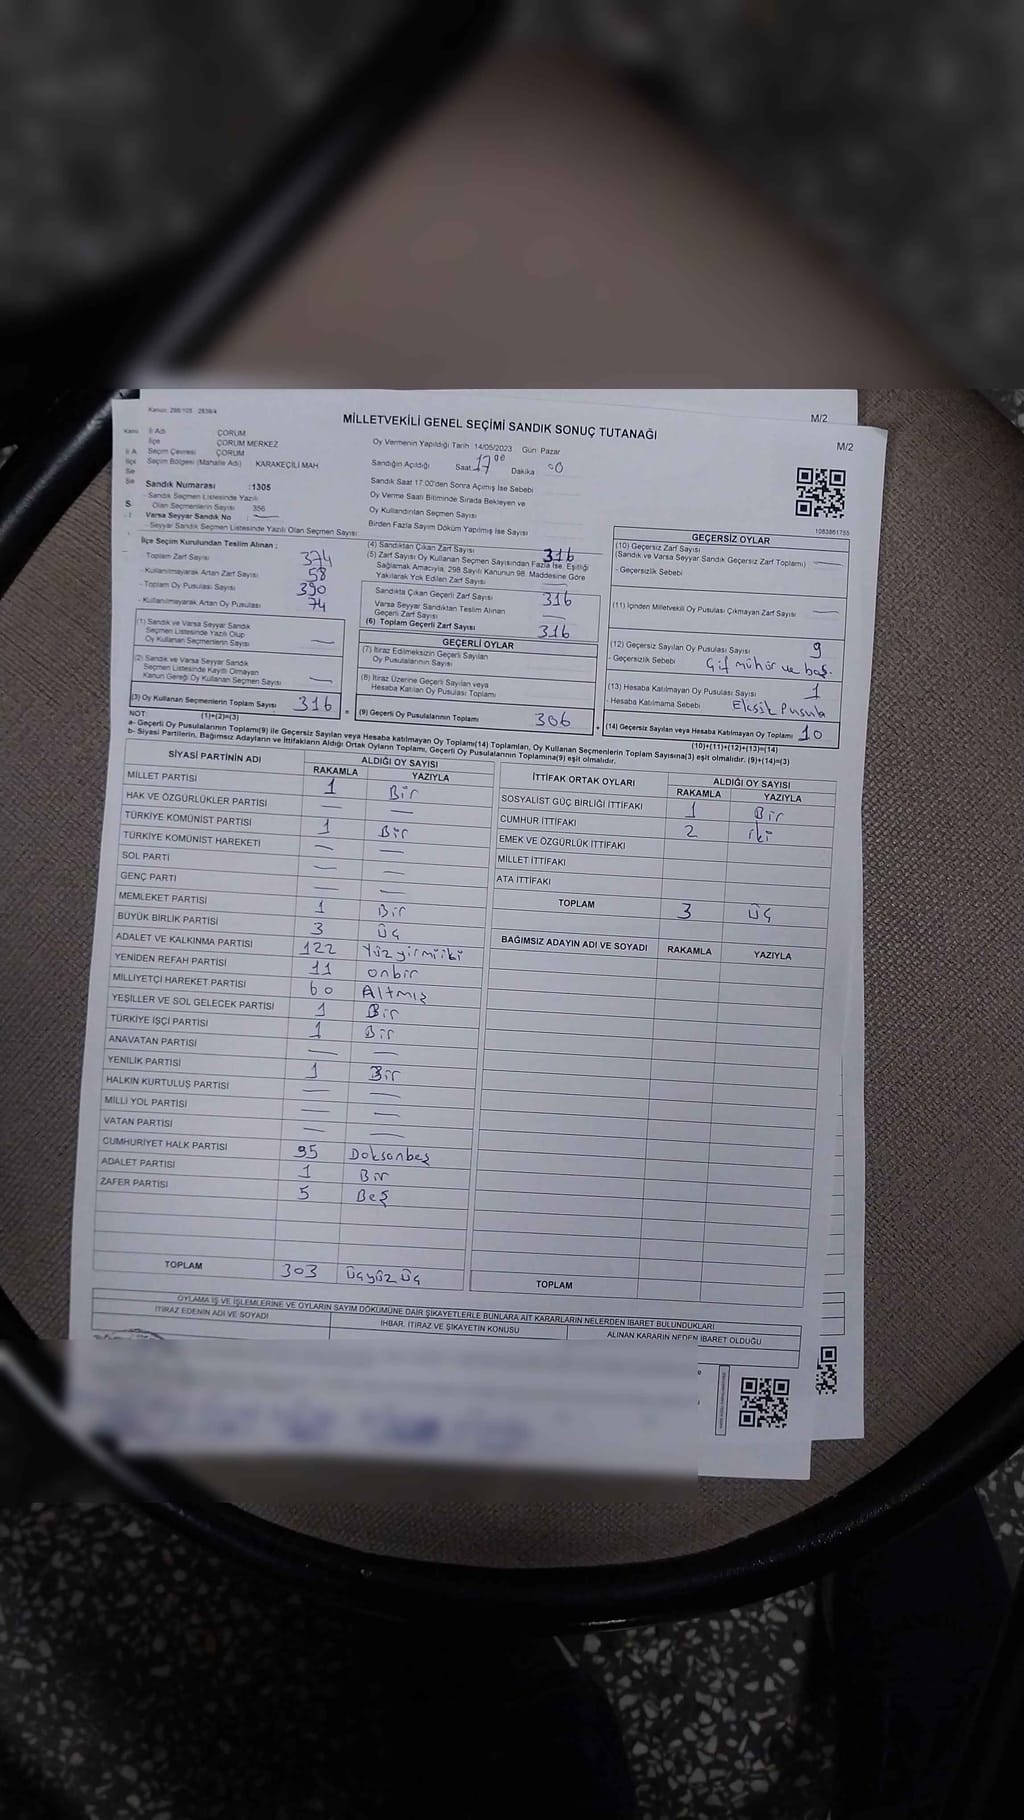 Kanun: 298/105 2839/4
MİLLETVEKİLİ GENEL SEÇİMİ SANDIK SONUÇ TUTANAĞI
M/2
M/2
İl Adı ÇORUM
İlçe ÇORUM MERKEZ
Seçim Çevresi ÇORUM
Seçim Bölgesi (Mahalle Adı) KARAKEÇİLİ MAH
Sandık Numarası :1305
- Sandık Seçmen Listesinde Yazılı
Olan Seçmenlerin Sayısı 356
Varsa Seyyar Sandık No : —
- Seyyar Sandık Seçmen Listesinde Yazılı Olan Seçmen Sayısı
Oy Vermenin Yapıldığı Tarih :14/05/2023 Gün: Pazar
Sandığın Açıldığı Saat 17 00 Dakika 00
Sandık Saat 17.00'den Sonra Açımış İse Sebebi
Oy Verme Saati Bitiminde Sırada Bekleyen ve
Oy Kullandırılan Seçmen Sayısı
Birden Fazla Sayım Döküm Yapılmış İse Sayısı
1063861755
İlçe Seçim Kurulundan Teslim Alınan :
- Toplam Zarf Sayısı 374
- Kullanılmayarak Artan Zarf Sayısı 58
- Toplam Oy Pusulası Sayısı 390
- Kullanılmayarak Artan Oy Pusulası 74
(1) Sandık ve Varsa Seyyar Sandık
Seçmen Listesinde Yazılı Olup
Oy Kullanan Seçmenlerin Sayısı —
(2) Sandık ve Varsa Seyyar Sandık
Seçmen Listesinde Kayıtlı Olmayan
Kanun Gereği Oy Kullanan Seçmen Sayısı —
(3) Oy Kullanan Seçmenlerin Toplam Sayısı 316
(1)+(2)=(3)
(4) Sandıktan Çıkan Zarf Sayısı 316
(5) Zarf Sayısı Oy Kullanan Seçmen Sayısından Fazla İse, Eşitliği
Sağlamak Amacıyla, 298 Sayılı Kanunun 98. Maddesine Göre
Yakılarak Yok Edilen Zarf Sayısı —
Sandıkta Çıkan Geçerli Zarf Sayısı 316
Varsa Seyyar Sandıktan Teslim Alınan
Geçerli Zarf Sayısı —
(6) Toplam Geçerli Zarf Sayısı 316
GEÇERLİ OYLAR
(7) İtiraz Edilmeksizin Geçerli Sayılan
Oy Pusulalarının Sayısı
(8) İtiraz Üzerine Geçerli Sayılan veya
Hesaba Katılan Oy Pusulası Toplamı
= (9) Geçerli Oy Pusulalarının Toplamı 306
GEÇERSİZ OYLAR
(10) Geçersiz Zarf Sayısı
(Sandık ve Varsa Seyyar Sandık Geçersiz Zarf Toplamı) —
- Geçersizlik Sebebi
(11) İçinden Milletvekili Oy Pusulası Çıkmayan Zarf Sayısı
(12) Geçersiz Sayılan Oy Pusulası Sayısı 9
- Geçersizlik Sebebi Çif mühür ve boş.
(13) Hesaba Katılmayan Oy Pusulası Sayısı 1
- Hesaba Katılmama Sebebi Eksik Pusula
+ (14) Geçersiz Sayılan veya Hesaba Katılmayan Oy Toplamı 10
(10)+(11)+(12)+(13)=(14)
NOT:
a- Geçerli Oy Pusulalarının Toplamı(9) ile Geçersiz Sayılan veya Hesaba katılmayan Oy Toplamı(14) Toplamları, Oy Kullanan Seçmenlerin Toplam Sayısına(3) eşit olmalıdır. (9)+(14)=(3)
b- Siyasi Partilerin, Bağımsız Adayların ve İttifakların Aldığı Ortak Oyların Toplamı, Geçerli Oy Pusulalarının Toplamına(9) eşit olmalıdır.
SİYASİ PARTİNİN ADI ALDIĞI OY SAYISI
RAKAMLA YAZIYLA
MİLLET PARTİSİ 1 Bir
HAK VE ÖZGÜRLÜKLER PARTİSİ — —
TÜRKİYE KOMÜNİST PARTİSİ 1 Bir
TÜRKİYE KOMÜNİST HAREKETİ — —
SOL PARTİ — —
GENÇ PARTİ — —
MEMLEKET PARTİSİ 1 Bir
BÜYÜK BİRLİK PARTİSİ 3 Üç
ADALET VE KALKINMA PARTİSİ 122 Yüzyirmiiki
YENİDEN REFAH PARTİSİ 11 onbir
MİLLİYETÇİ HAREKET PARTİSİ 60 Altmış
YEŞİLLER VE SOL GELECEK PARTİSİ 1 Bir
TÜRKİYE İŞÇİ PARTİSİ 1 Bir
ANAVATAN PARTİSİ — —
YENİLİK PARTİSİ 1 Bir
HALKIN KURTULUŞ PARTİSİ — —
MİLLİ YOL PARTİSİ — —
VATAN PARTİSİ — —
CUMHURİYET HALK PARTİSİ 95 Doksanbeş
ADALET PARTİSİ 1 Bir
ZAFER PARTİSİ 5 Beş
TOPLAM 303 Üçyüz üç
İTTİFAK ORTAK OYLARI ALDIĞI OY SAYISI
RAKAMLA YAZIYLA
SOSYALİST GÜÇ BİRLİĞİ İTTİFAKI 1 Bir
CUMHUR İTTİFAKI 2 iki
EMEK VE ÖZGÜRLÜK İTTİFAKI
MİLLET İTTİFAKI
ATA İTTİFAKI
TOPLAM 3 Üç
BAĞIMSIZ ADAYIN ADI VE SOYADI RAKAMLA YAZIYLA
TOPLAM
OYLAMA İŞ VE İŞLEMLERİNE VE OYLARIN SAYIM DÖKÜMÜNE DAİR ŞİKAYETLERLE BUNLARA AİT KARARLARIN NELERDEN İBARET BULUNDUKLARI
İTİRAZ EDENİN ADI VE SOYADI İHBAR, İTİRAZ VE ŞİKAYETİN KONUSU ALINAN KARARIN NEDEN İBARET OLDUĞU